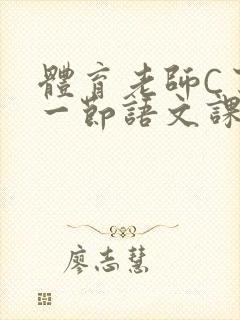 體育老師C
一節語文課
廖志慧